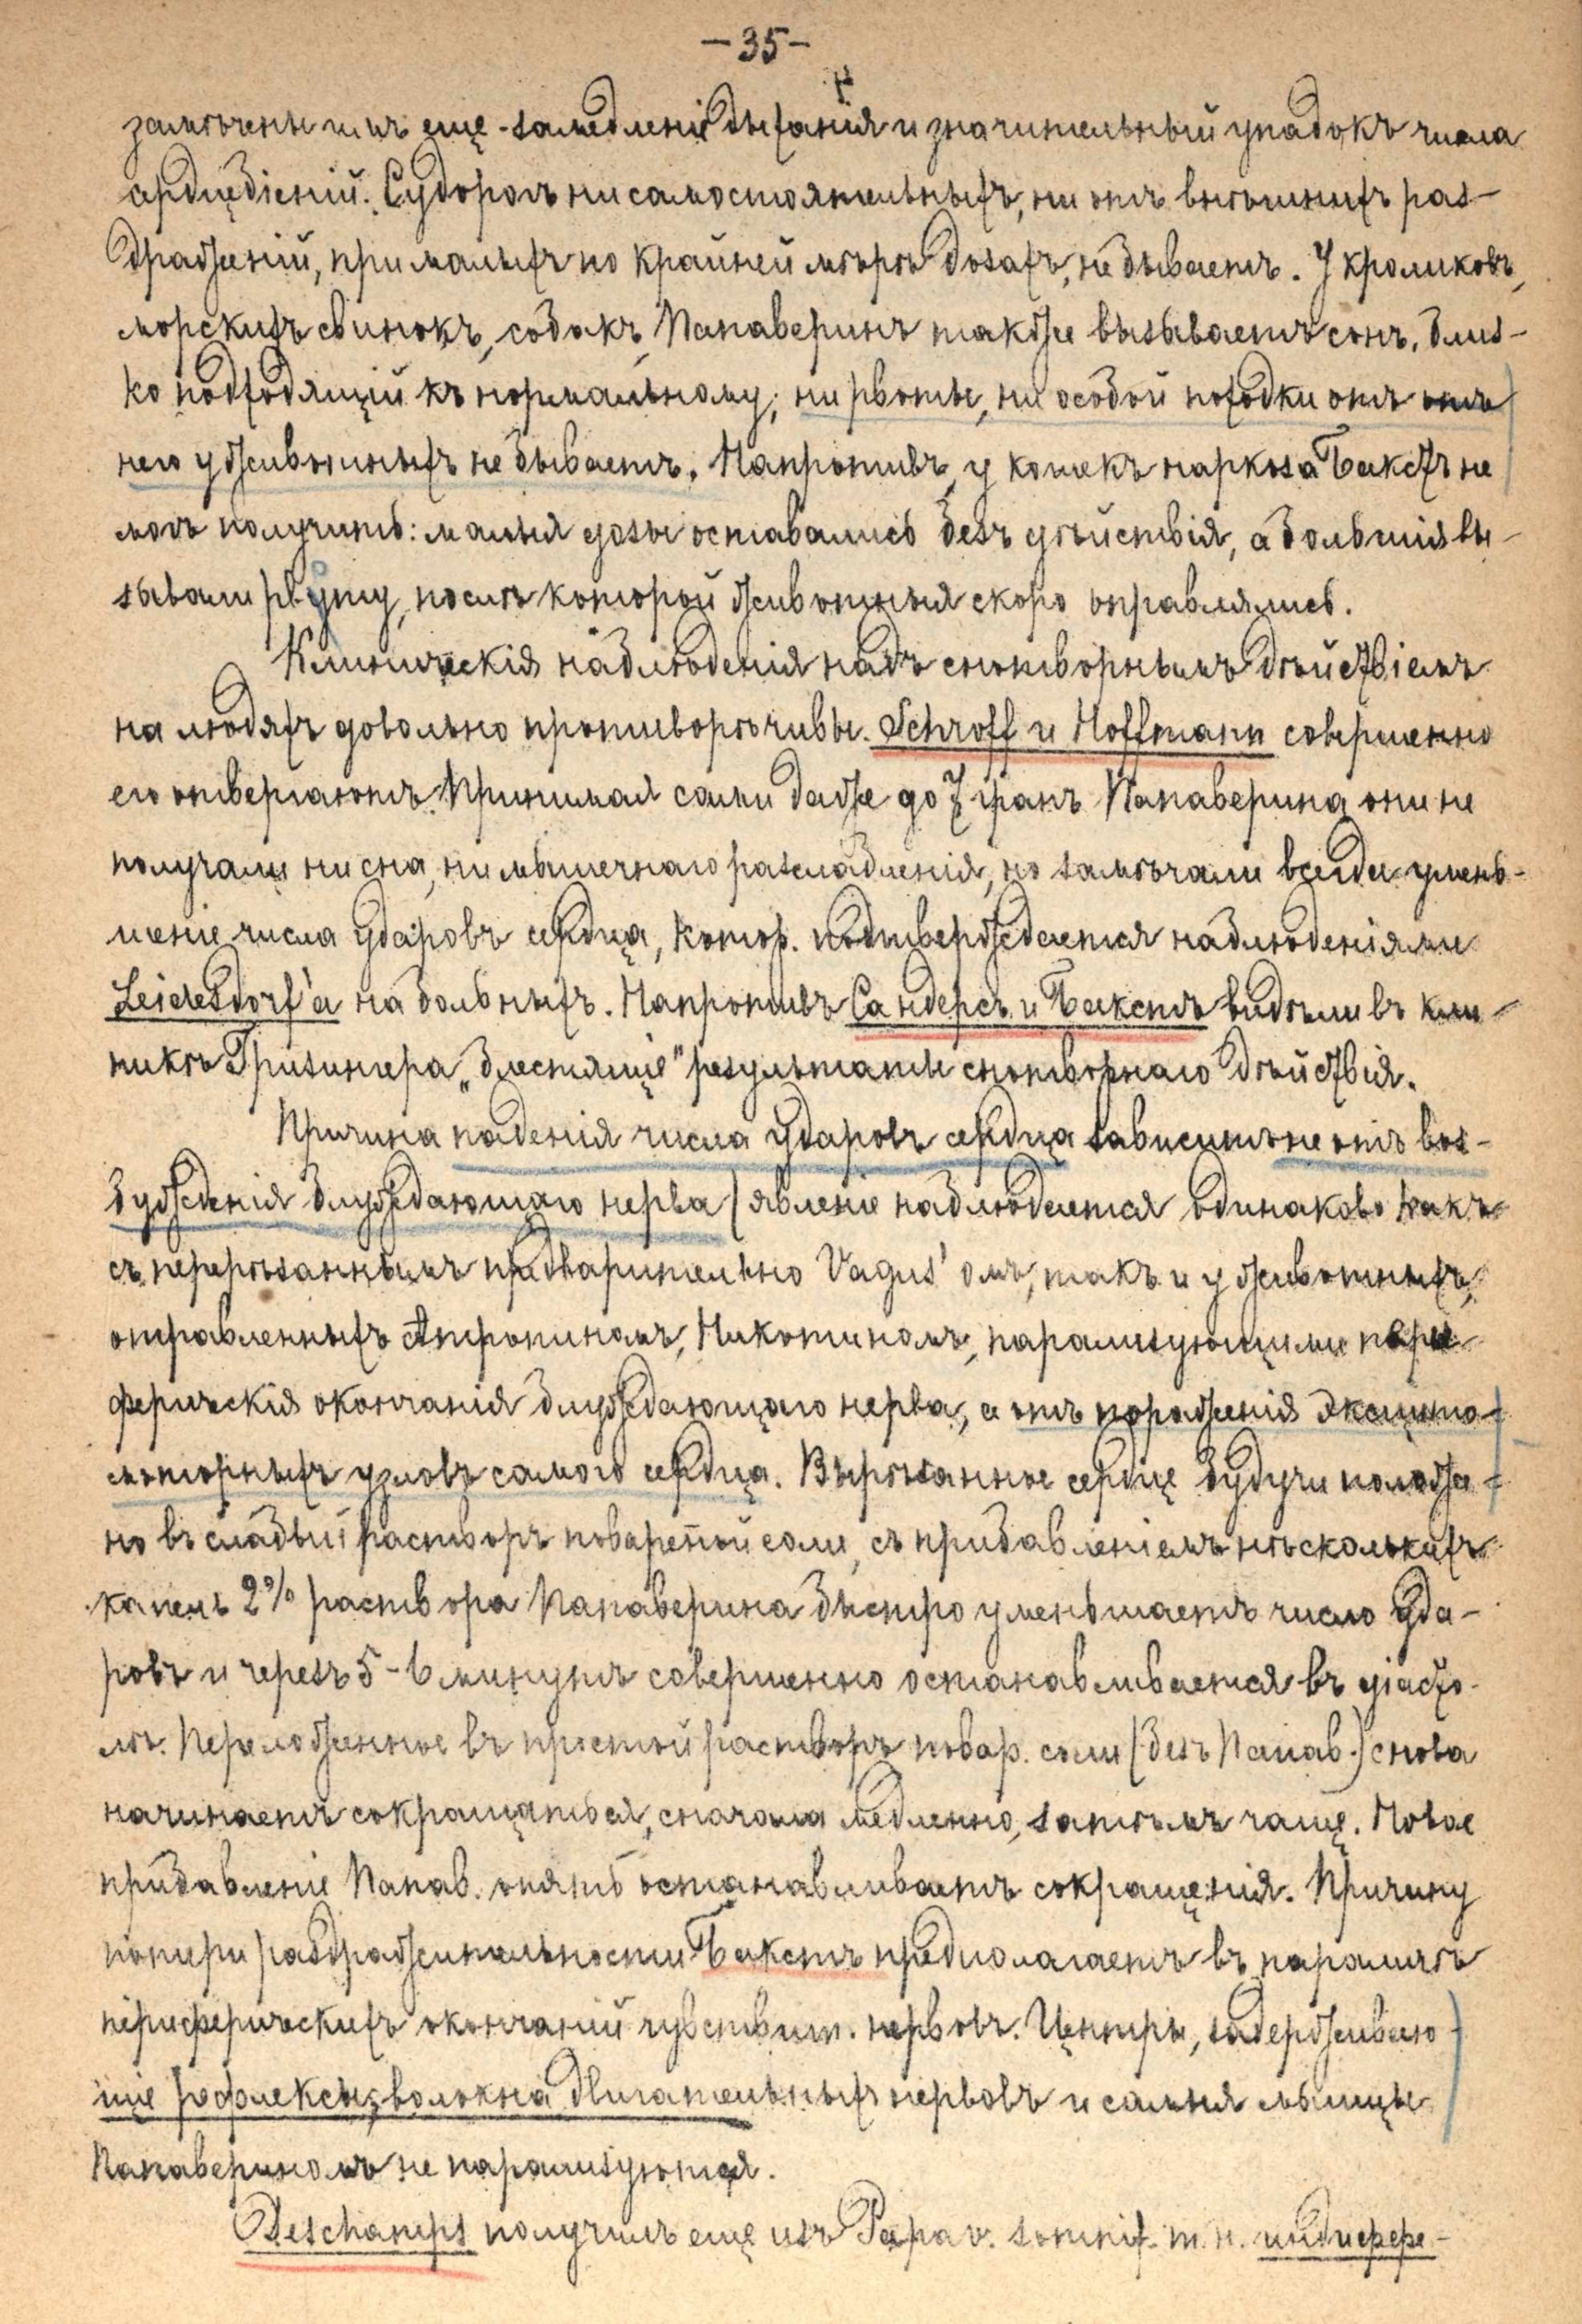 -35-
замѣчены имъ еще замедленіе дыханія и значительный упадокъ числа
сердцебіеній. Судорогъ ни самостоятельныхъ, ни отъ внѣшнихъ раз-
драженій, при малыхъ по крайней мѣрѣ дозахъ, не бываетъ. У кроликовъ,
морскихъ свинокъ, собакъ, Папаверинъ также вызываетъ сонъ, близ-
ко подходящій къ нормальному; ни рвоты, ни особой походки отъ отъ
него у животныхъ не бываетъ. Напротивъ, у кошекъ наркоза Бакстъ не
могъ получить: малыя дозы оставались безъ дѣйствія, а большія вы-
зывали рвоту, послѣ которой животныя скоро оправлялись.
Клиническія наблюденія надъ снотворнымъ дѣйствіемъ
на людяхъ довольно противорѣчивы. Schroff и Hoffmann совершенно
его отвергаютъ. Принимая сами даже до 7 гранъ Папаверина они не
получали ни сна, ни мышечнаго разслабленія, но замѣчали всегда умень-
шеніе числа ударовъ сердца, котор. подтверждается наблюденіями
Leidesdorf'а на больныхъ. Напротивъ Сандерсъ и Бакстъ видѣли въ кли-
никѣ Гризингера „блестящіе" результаты снотворнаго дѣйствія.
Причина паденія числа ударовъ сердца зависитъ не отъ воз-
бужденія блуждающаго нерва (явленіе наблюдается одинаково какъ
съ перерѣзаннымъ предварительно Vagus'омъ, такъ и у животныхъ,
отравленныхъ Атропиномъ, Никотиномъ, парализующими пери-
ферическія окончанія блуждающаго нерва, а отъ пораженія эксцито-
моторныхъ узловъ самого сердца. Вырѣзанное сердце будучи положе-
но въ слабый растворъ поваренной соли, съ прибавленіемъ нѣсколькихъ
капель 2% раствора Папаверина быстро уменьшаетъ число уда-
ровъ и черезъ 5-6 минутъ совершенно останавливается въ діасто-
лѣ. Переложенное въ простой растворъ повар. соли (безъ Папав.) снова
начинаетъ сокращаться, сначала медленно, затѣмъ чаще. Новое
прибавленіе Папав. опять останавливаетъ сокращенія. Причину
потери раздражительности Бакстъ предполагаетъ въ параличѣ
периферическихъ окончаній чувствит. нервовъ. Центры, задерживаю-
щіе рефлексы, волокна двигательныхъ нервовъ и самыя мышцы
Папавериномъ не парализуются.
Deschamps получилъ еще изъ Papav. somnif. т. н. индиффере-